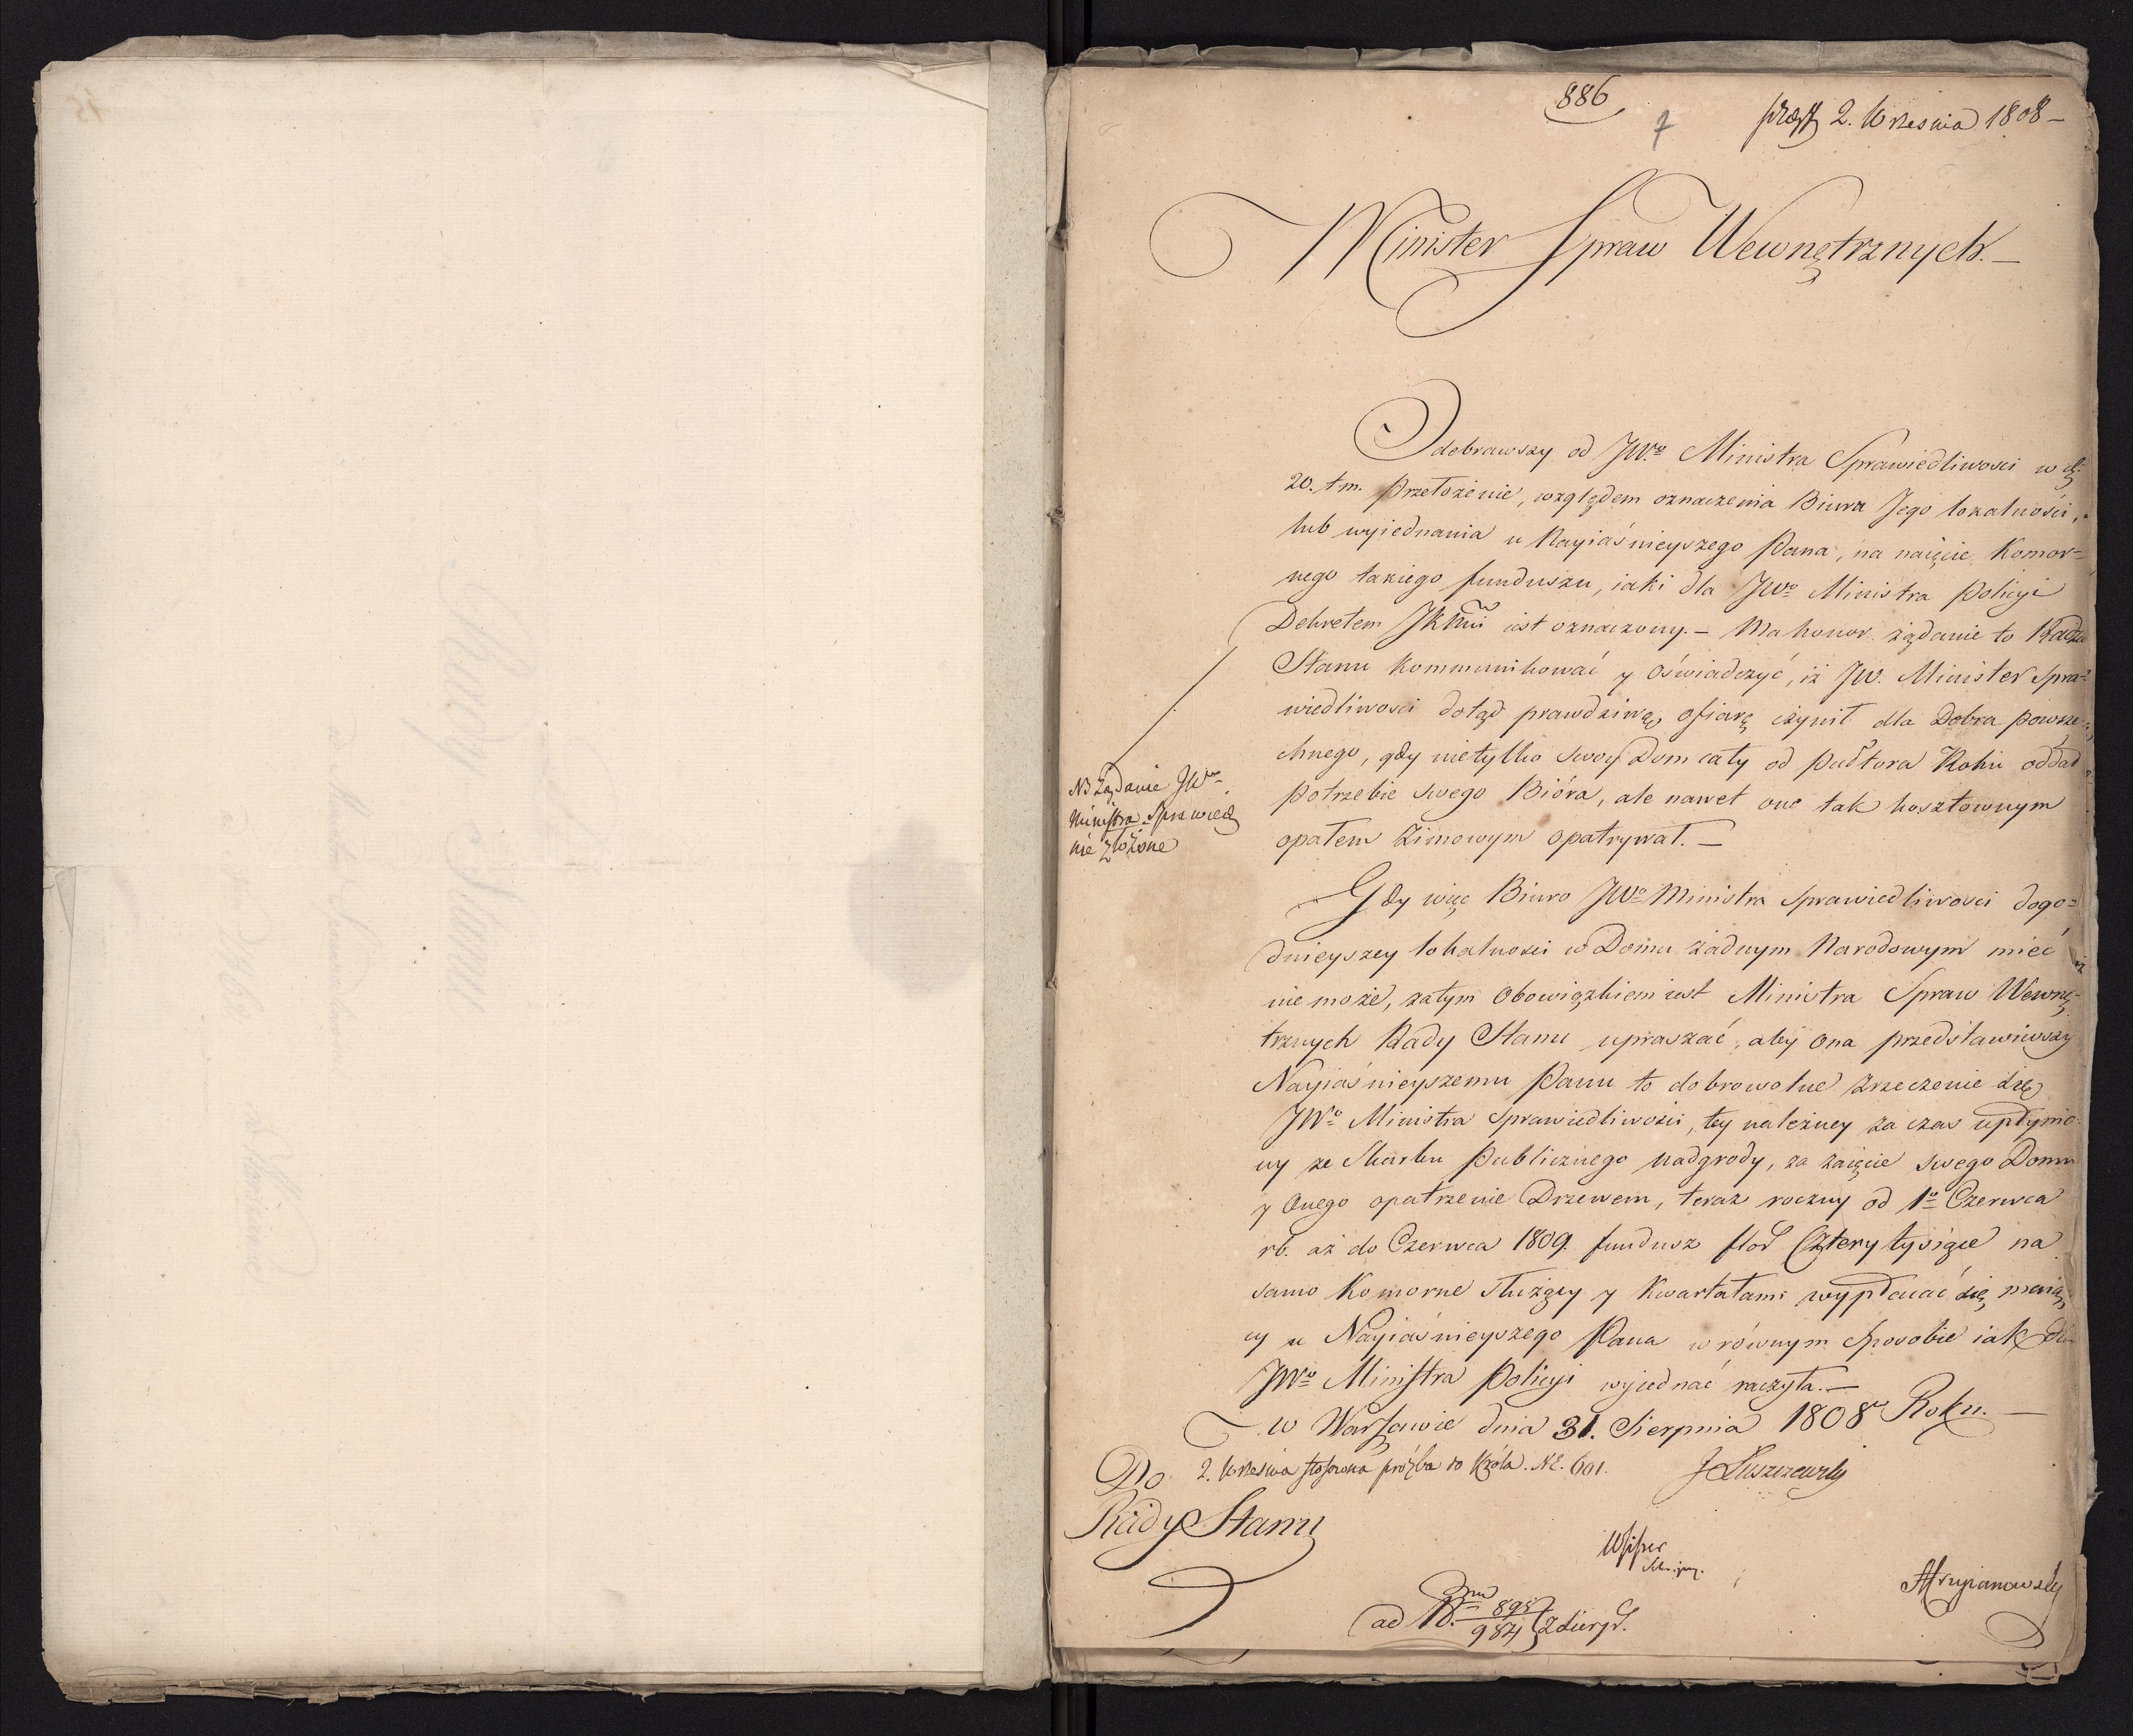 886
7
2. Września 1808 –
Minister Spraw Wewnętrznych. –
Odebrawszy od JWo. Ministra Sprawiedliwosci w d.
20. t m. przełożenie, względem oznaczenia Biura Jego lokalności,
lub wyiednania u Nayiaśnieyszego Pana, na naięcie Komor=
nego takiego funduszu, iaki dla JWo Ministra Policyi
Dekretem JKMci iest oznaczony. – Ma honor żądanie to Radzie
Stanu kommunikować y oświadczyć, iż JW. Minister Spra=
wiedliwosci dotąd prawdziwą ofiarę czynił dla Dobra powsze=
chnego, gdy nietylko swoy Dom cały od pułtora Roku oddał
potrzebie swego Bióra, ale nawet one tak kosztownym
opałem zimowym opatrywał. –
NB Żądanie JWo
Ministra Sprawied
nie złożone
Gdy więc Biuro JWo Ministra Sprawiedliwosci dogo=
dnieyszey lokalnosci w Domu żadnym Narodowym mieć
nie może, zatym Obowiązkiem iest Ministra Spraw Wewnę=
trznych Rady Stanu upraszać, aby Ona przedstawiwszy
Nayiaśnieyszemu Panu to dobrowolne zrzeczenie się
JWo Ministra Sprawiedliwości, tey należney za czas upłynio=
ny ze Skarbu Publicznego nadgrody, za zaięcie swego Domu
y Onego opatrzenie Drzewem, teraz roczny od 1o Czerwca
rb. aż do Czerwca 1809. fundusz Cztery tysiące na
samo Komorne służący y kwartałami wypłacać się maią=
cy u Nayiaśnieyszego Pana w równym sposobie iak dla
JWo Ministra Policyi wyiednać raczyła. –
w Warszawie dnia 31. Sierpnia 1808 Roku. –
Do 2. Września stosowna proźba do Króla. N. 601. J Łuszczewski
Rady Stanu
ad N. 895/984 z Sierp.